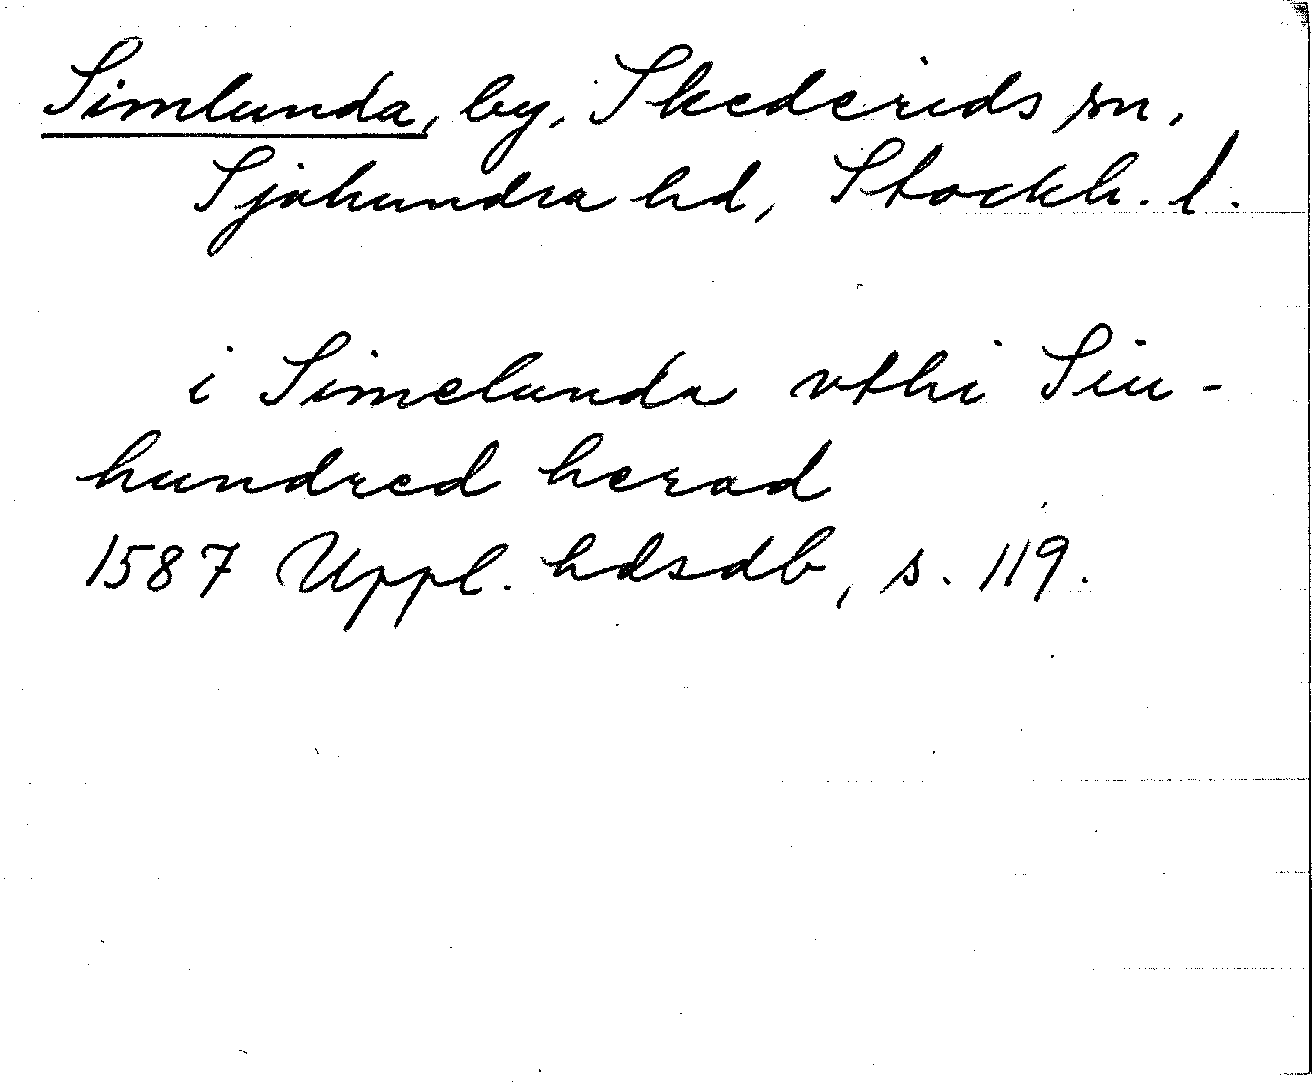 Simlunda, by, Skederids sn,
Sjuhundra hd, Stockh. l.
i Simelunda vthi Siu-
hundred herad
1587 Uppl. hdsdb, s. 119.